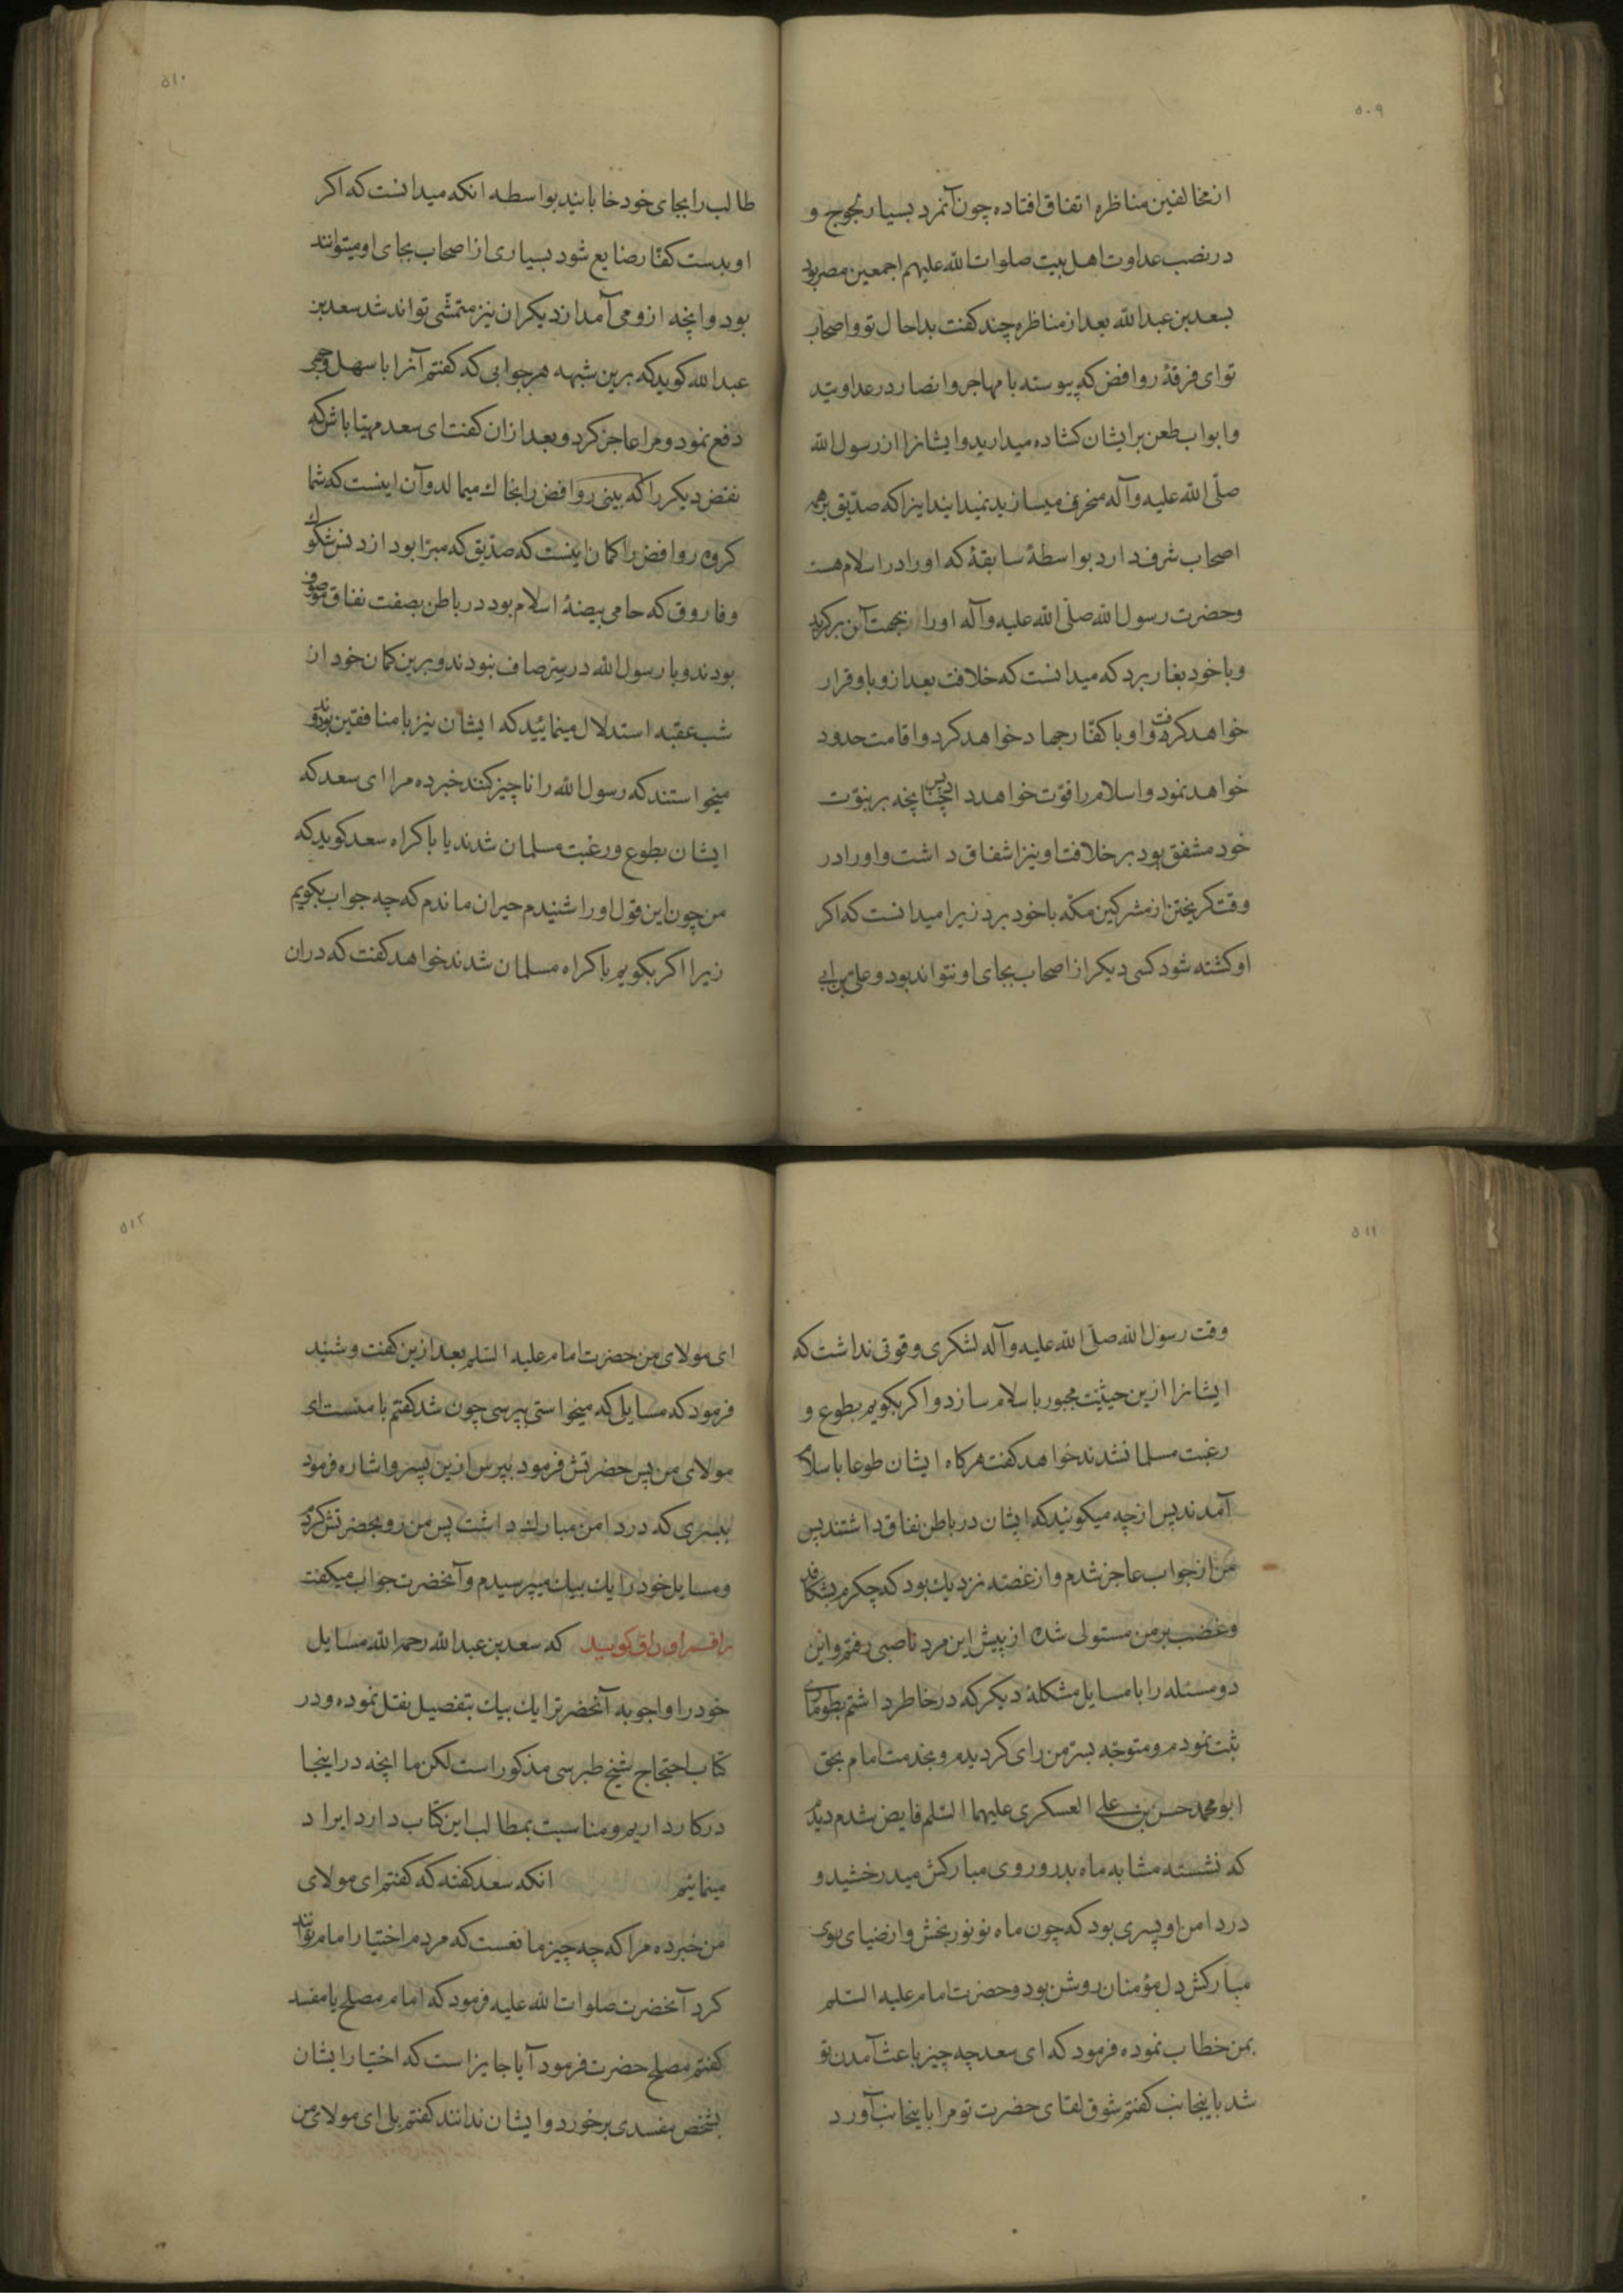 ۵۰۹
از مخالفین مناظره اتفاق افتاده چون آنمرد بسیار لجوج و
در نصب عداوت اهل بیت صلوات الله علیهم اجمعین مصر بود
بسعد بن عبدالله بعد از مناظره چند کفت بدا حال تو و اصحاب
تو ای فرقهٔ روافض که پیوسته با مهاجر و انصار در عداوتید
و ابواب طعن بر ایشان کشاده میدارید و ایشانرا از رسول الله
صلّی الله علیه و آله منحرف میسازید نمیدانید اینرا که صدّیق بر همه
اصحاب شرف دارد بواسطهٔ سابقهٔ که اورا در اسلام هست
و حضرت رسول الله صلّی الله علیه و آله اورا بجهت آن برکزید
و با خود بغار برد که میدانست که خلافت بعد ازو باو قرار
خواهد کرفت و او با کفّار جهاد خواهد کرد و اقامت حدود
خواهد نمود و اسلام را قوّت خواهد داد پس چنانچه بر نبوّت
خود مشفق بود بر خلافت او نیز اشفاق داشت و اورا در
وقت کریختن از مشرکین مکّه با خود برد زیرا میدانست که اکر
او کشته شود کسی دیکر از اصحاب بجای او نتواند بود و علی بن ابی
۵۱۰
طالب را بجای خود خابانید بواسطه انکه میدانست که اکر
او بدست کفّار ضایع شود بسیاری از اصحاب بجای او میتوانند
بود و انچه ازو می آمد از دیکران نیز متمشّی تواند شد سعد بن
عبدالله کوید که برین شبهه هر جوابی که کفتم آنرا با سهل وجهی
دفع نمود و مرا عاجز کرد و بعد از ان کفت ای سعد مهیّا باش که
نقض دیکر را که بینی روافض را بخاك میمالد و آن اینست که شما
کروه روافض را کمان اینست که صدّیق که مبرّا بود از دنس شکوك
و فاروق که حامی بیضهٔ اسلام بود در باطن بصفت نفاق موصوف
بودند و با رسول الله در سِرّ صاف نبودند و برین کمان خود از
شب عقبه استدلال مینمائید که ایشان نیز با منافقین بودند و
میخواستند که رسول الله را ناچیز کنند خبر ده مرا ای سعد که
ایشان بطوع و رغبت مسلمان شدند یا باکراه سعد کوید که
من چون این قول اورا شنیدم حیران ماندم که چه جواب بکویم
زیرا اکر بکویم باکراه مسلمان شدند خواهد کفت که در ان
۵۱۱
وقت رسول الله صلّی الله علیه و آله لشکری و قوتی نداشت که
ایشانرا ازین حیثیت مجبور باسلام سازد و اکر بکویم بطوع و
رغبت مسلمان شدند خواهد کفت هر کاه ایشان طوعا باسلام
آمدند پس از چه میکوئید که ایشان در باطن نفاق داشتند پس
من از جواب عاجز شدم و از غصّه نزدیك بود که جکرم بشکافد
و غضب بر من مستولی شده از پیش این مرد ناصبی رفتم و این
دو مسئله را با مسایل مشکلهٔ دیکر که در خاطر داشتم بطوماری
ثبت نمودم و متوجّه بسرّ من رای کردیدم و بخدمت امام بحق
ابو محمد حسن بن علی العسکری علیهما السّلم فایض شدم دیدم
که نشسته مشابه ماه بدر و روی مبارکش میدرخشید و
در دامن او پسری بود که چون ماه نو نور بخش و از ضیای روی
مبارکش دل مؤمنان روشن بود و حضرت امام علیه السّلم
بمن خطاب نموده فرمود که ای سعد چه چیز باعث آمدن تو
شد باینجانب کفتم شوق لقای حضرت تو مرا باینجانب آورد
۵۱۲
ای مولای من حضرت امام علیه السّلم بعد ازین کفت و شنید
فرمود که مسایل که میخواستی بپرسی چون شد کفتم با منست ای
مولای من پس حضرتش فرمود بپرس ازین پسر و اشاره فرمود
بپسری که در دامن مبارك داشت پس من رو بحضرتش کردم
و مسایل خود را یك بیك میپرسیدم و آنحضرت جواب میکفت
راقم اوراق کوید که سعد بن عبدالله رحمه الله مسایل
خود را و اجوبه آنحضرترا یك بیك بتفصیل نقل نموده و در
کتاب احتجاج شیخ طبرسی مذکور است لکن ما انچه در اینجا
در کار داریم و مناسبت بمطالب این کتاب دارد ایراد
مینمائیم انکه سعد کفته که کفتم ای مولای
من خبر ده مرا که چه چیز مانعست که مردم اختیار امام توانند
کرد آنحضرت صلوات الله علیه فرمود که امام مصلح یا مفسد
کفتم مصلح حضرت فرمود آیا جایز است که اختیار ایشان
بشخص مفسدی بر خورد و ایشان ندانند کفتم بلی ای مولای من